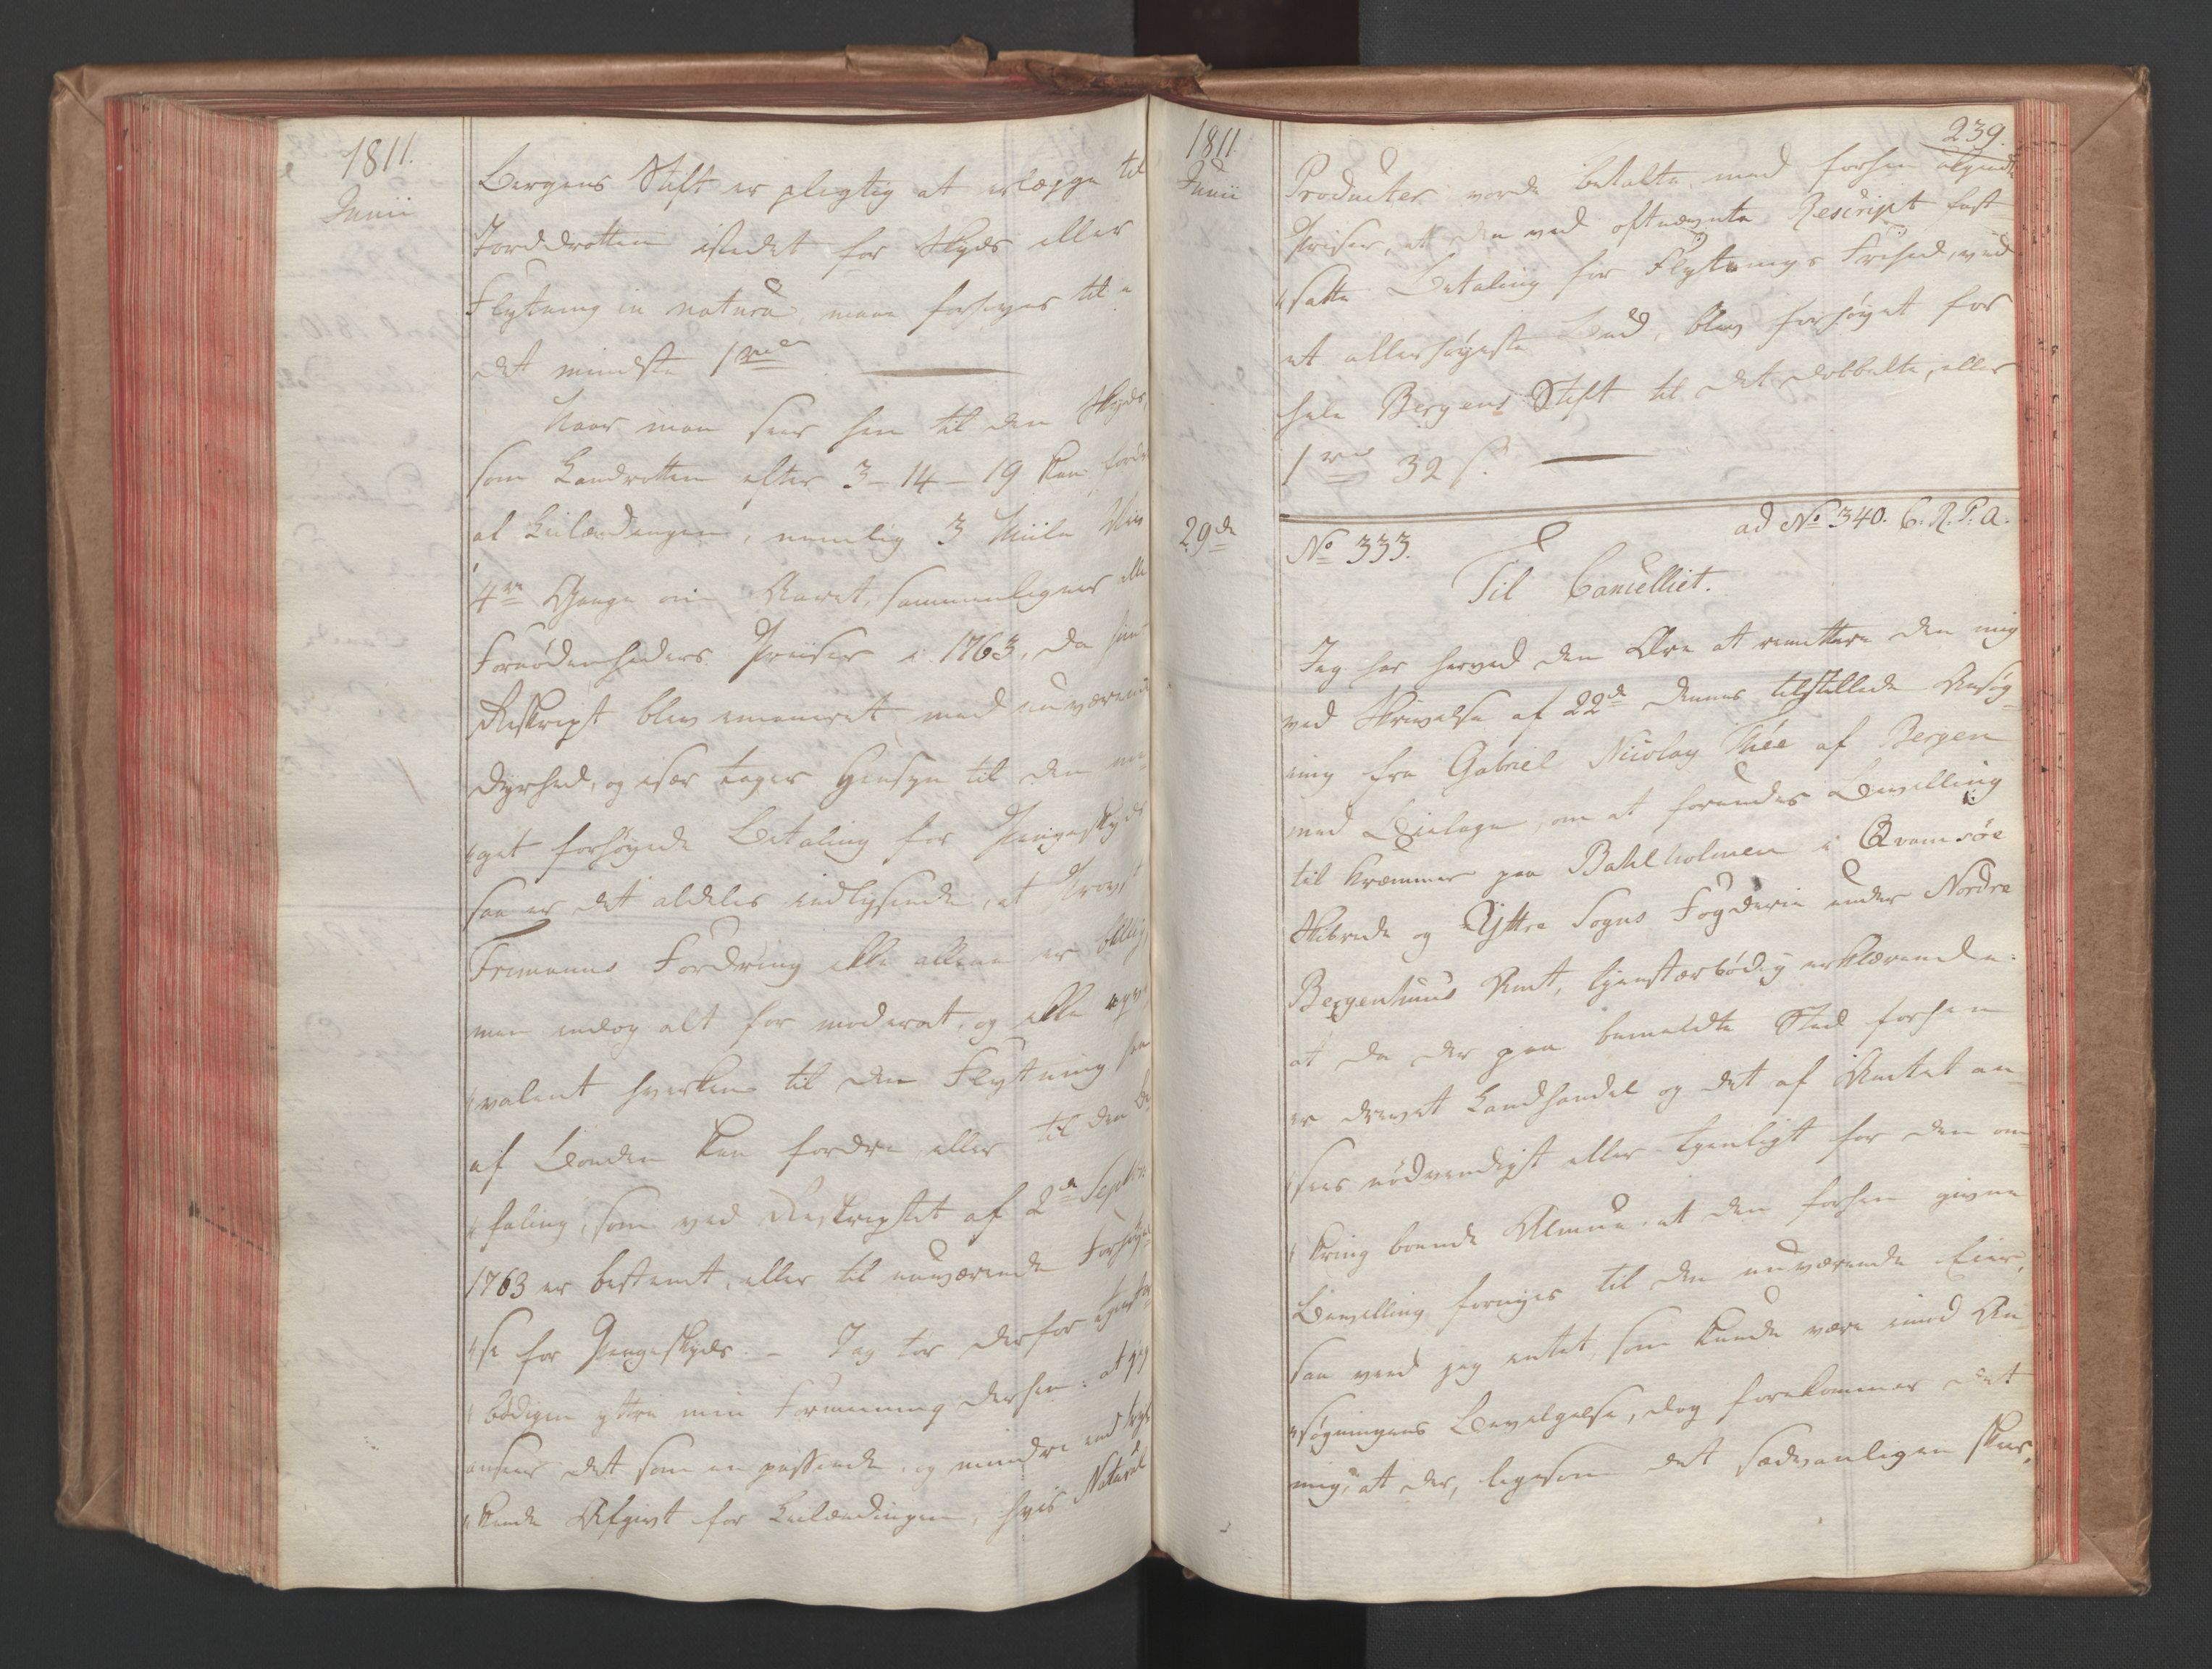 1811.
Junii
Bergens Stift er pligtig at erlægge til
Jorddrotten istedet for Skyds eller
Flytning in natura, maae forhøyes til
det mindste 1 rd
Naar man seer hen til den Skyds,
som Landrotten efter 3-14-19 kan fordre
af Leilændingen, nemlig 3 Miile
4re Gange om Aaret, sammenligner alle
Fornødenheders Priiser i 1763, da hiin
Reskript blev emaneret med nuværende
Dyrhed, og især tager Hensyn til den me-
get forhøyede Betaling for Pengeskyds
saa er det aldeles indlysende, at Provst
Frimanns Fordring ikke allene er billig,
men endog alt for moderat, og ikke æqvi-
valent hverken til den Flytning han
af Bonden kan fordre, eller til den Be-
taling, som ved Reskriptet af 2de Septbr
1763 er bestemt, eller til nuværende Forhøyel-
se for Pengeskyds. - Jeg tør derfor tienstær-
bødigen yttre min Formening derhen: at jeg
ansaae det som en passende, og mindre end tryk-
kende Afgivt for Leilændingen, hvis Natural
1811
Junii
239.
Producter vorde betalte med forhen
Priser, at den ved oftnævnte Rescript fast-
satte Betaling for Flytnings Frihed, ved
et allerhøyeste Bud, blev forhøyet for
hele Bergens Stift til det dobbelte, eller
1 rd 32 s.
29de
No 333.
ad No 340. C. R. P. A.
Til Cancelliet.
Jeg har herved den Ære at remittere den mig
ved Skrivelse af 22de dennes tilstillede Ansøg-
ning fra Gabriel Nicolay Thée af Bergen
med Bielage, om at forundes Bevilling
til Kræmmer paa Bahlholmen i Qvamsøe
Skibrede og Yttre Sogns Fogderie under Nordre
Bergenhuus Amt, tienstærbødig erklærende:
at da der paa bemeldte Sted forhen
er drevet Landhandel og det af Amtet an-
sees nødvendigt eller tienligt for den om-
kring boende Almue, at den forhen givne
Bevilling fornyes til den nuværende Eier,
saa veed jeg intet, som kunde være imod An-
søgningens Bevilgelse, dog forekommer det
mig, at der, ligesom det sædvanligen skeer,